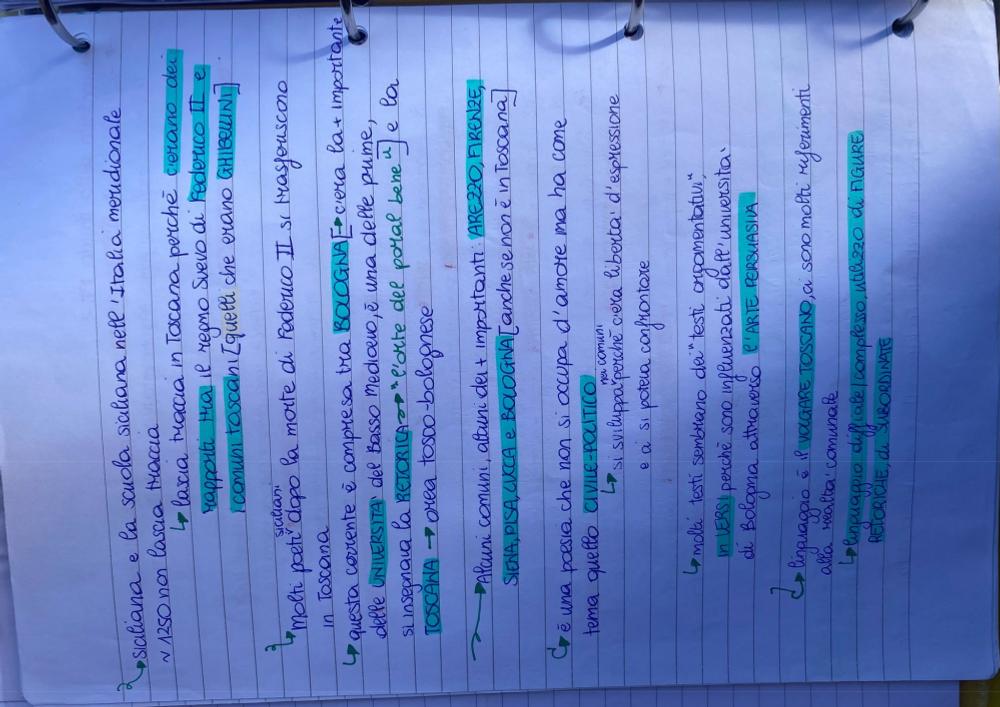 ↳ siciliana e la scuola siciliana nell'Italia meridionale
~ 1250 non lascia traccia
↳ lascia traccia in Toscana perché c'erano dei
rapporti tra il regno Svevo di Federico II e
i comuni toscani [quelli che erano GHIBELLINI]
↳ Molti poeti siciliani dopo la morte di Federico II si trasferiscono
in Toscana
↳ questa corrente è compresa tra BOLOGNA [→ c'era la + importante
delle UNIVERSITÀ del basso medioevo, è una delle prime,
si insegnava la RETORICA →→ "l'arte del parlar bene"] e la
TOSCANA → area tosco-bolognese
→ Alcuni comuni, alcuni dei + importanti: AREZZO, FIRENZE,
SIENA, PISA, LUCCA e BOLOGNA [anche se non è in Toscana]
↳ è una poesia che non si occupa d'amore ma ha come
tema quello CIVILE-POLITICO
↳ si sviluppa nei comuni perché c'era libertà d'espressione
e ci si poteva confrontare
↳ molti testi sembrano dei "testi argomentativi",
in VERSI perché sono influenzati dall'università
di Bologna attraverso l'ARTE PERSUASIVA
↳ linguaggio è il VOLGARE TOSCANO, ci sono molti riferimenti
alla realtà comunale
↳ linguaggio difficile/complesso, utilizzo di FIGURE
RETORICHE, di SUBORDINATE